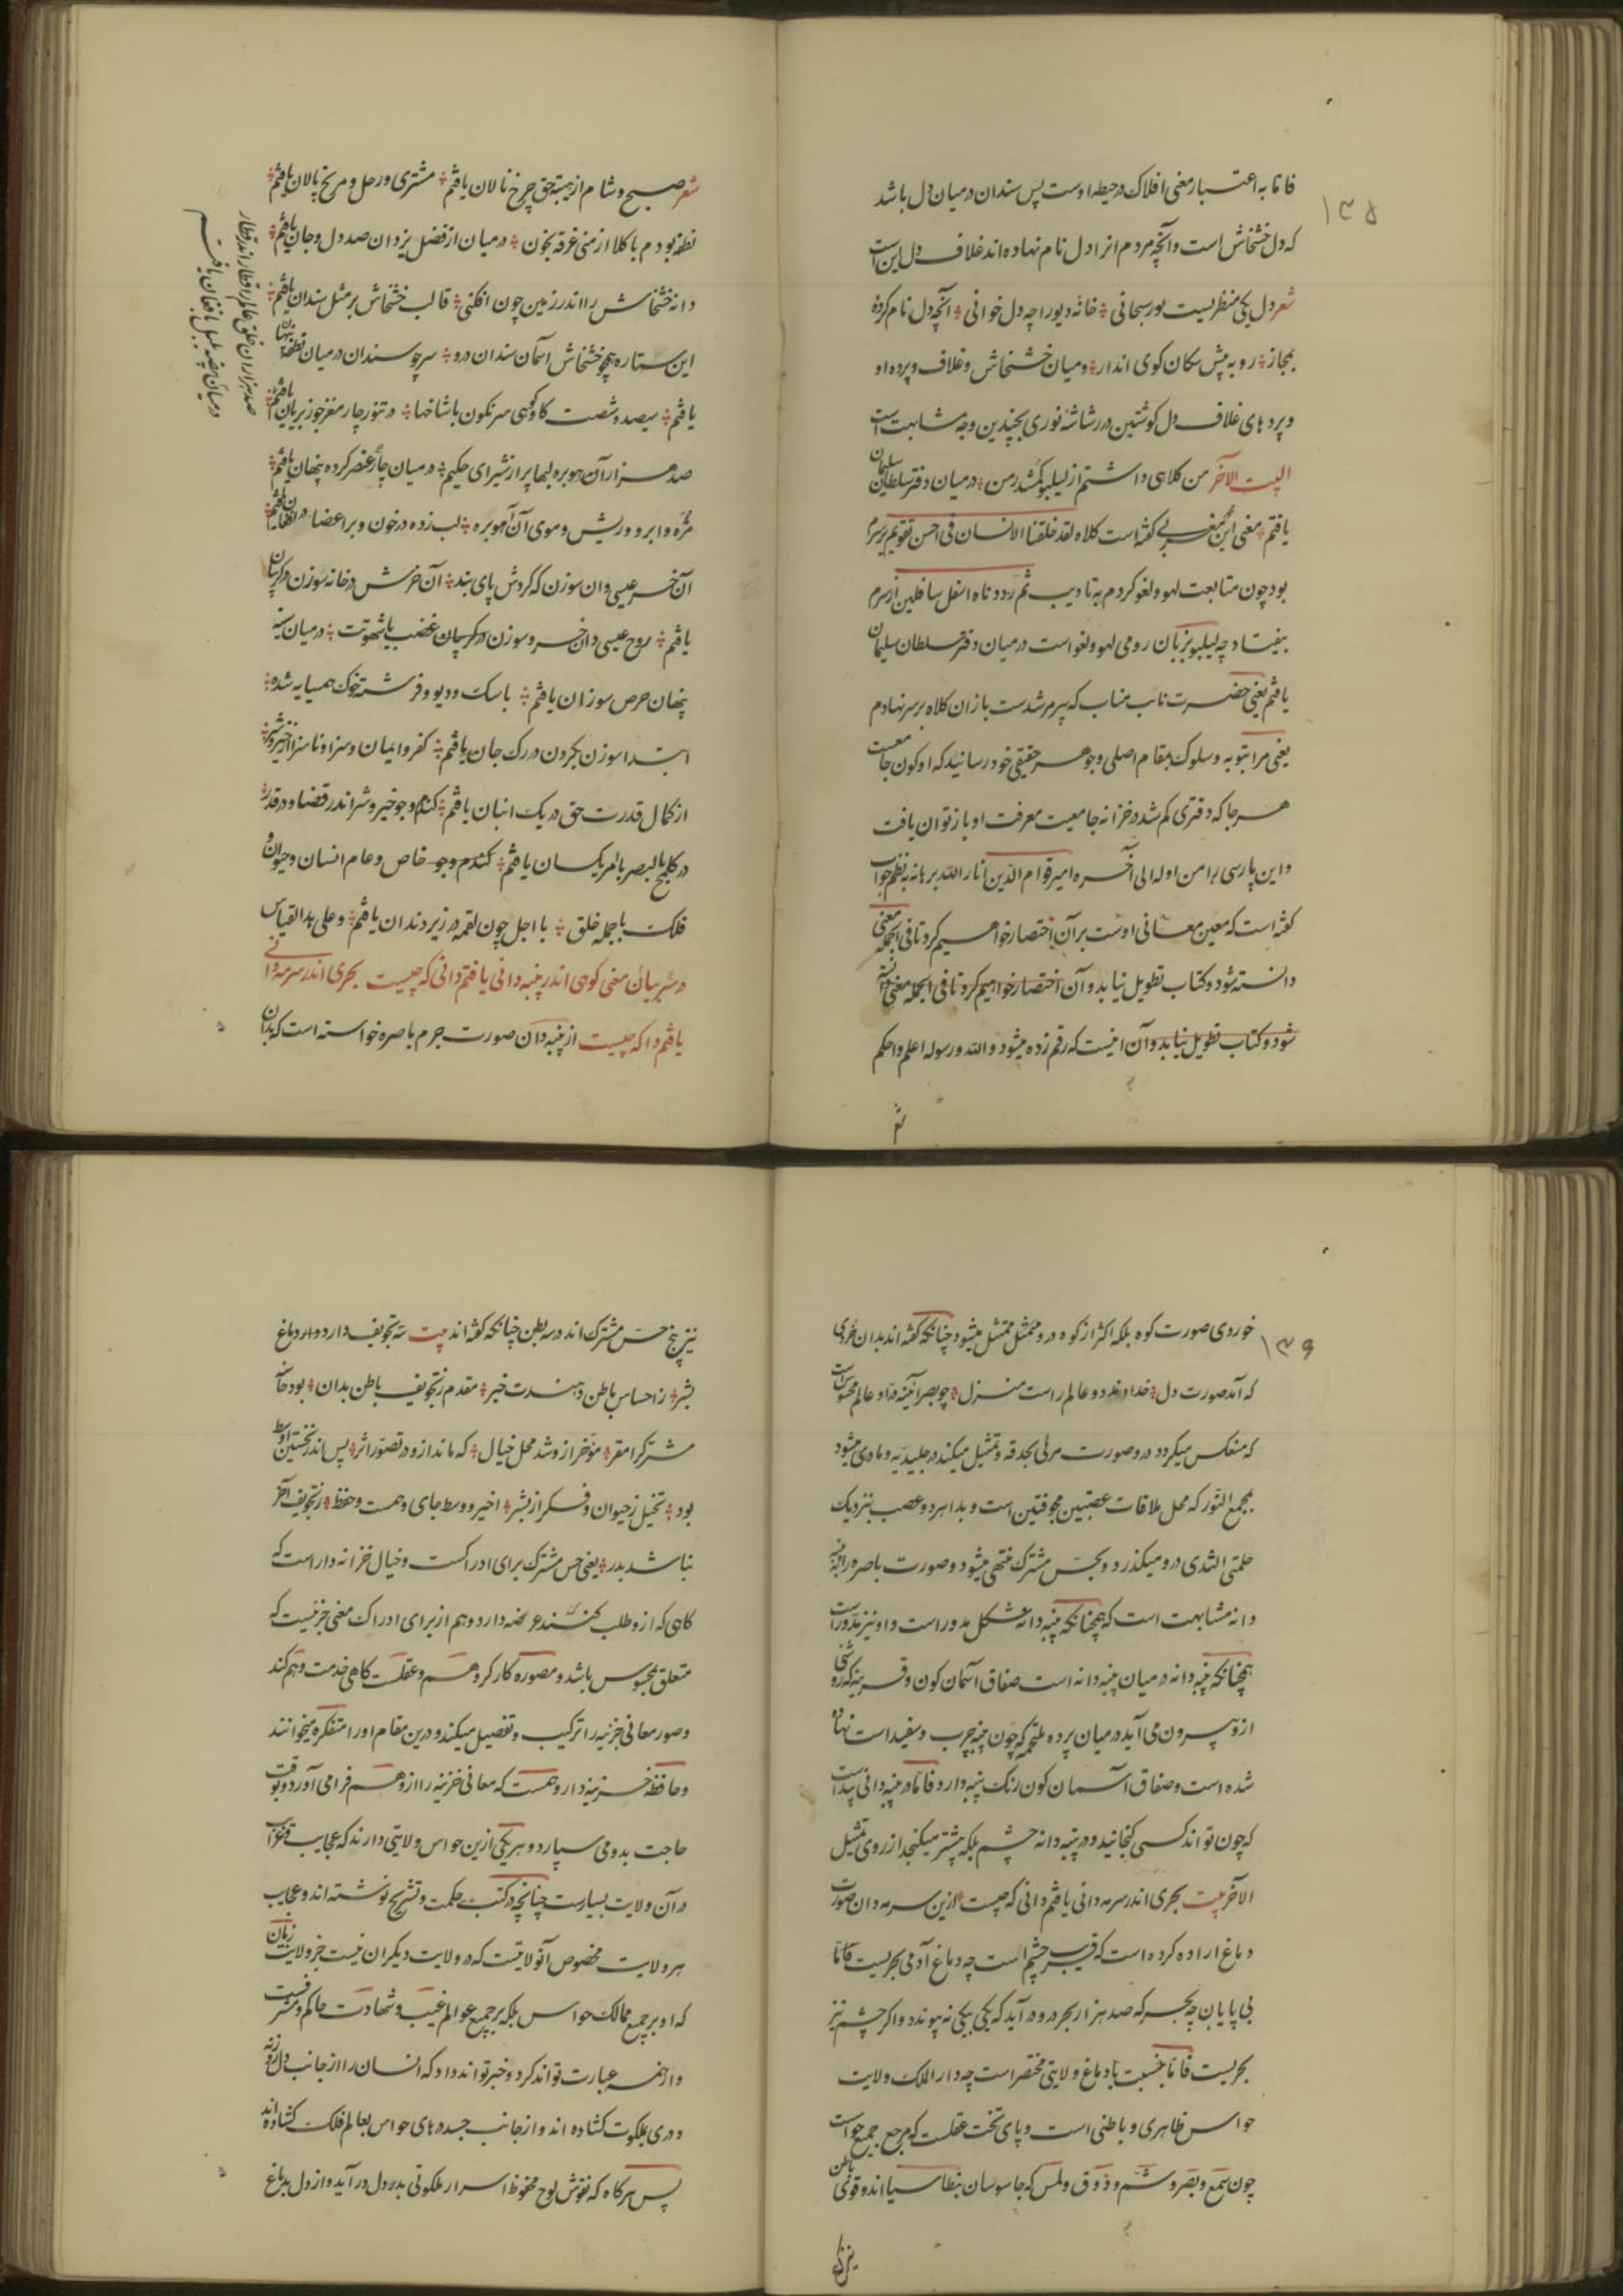 ۱۳۵
فاما به اعتبار معنی افلاک در حیطه اوست پس سندان در میان دل باشد
که دل خشخاش است و آنچه مردم انرا دل نام نهاده اند غلاف دل این است
شعر دل یکی منظریست نور سبحانی خانه دیو را چه دل خوانی آنچه دل نام کرده
بمجاز رو به پیش سکان کوی انداز و میان خشخاش و غلاف و پرده او
و پرده های غلاف دل کوشتین در رشاشه نوری بچندین وجه مشابهت است
البیت الآخر من کلاهی داشتم از لیلبو کمشد ز من در میان دفتر سلطان سلیمان
یافتم معنی این مغربی کفته است کلاه لقد خلقنا الانسان فی احسن تقویم بر سرم
بود چون متابعت لهو و لغو کردم به تادیب ثم رددناه اسفل سافلین از سرم
بیفتاد چه لیلبو بزبان رومی لهو و لغو است در میان دفتر سلطان سلیمان
یافتم یعنی حضرت نایب مناب که پیر مرشدست باز ان کلاه بر سر نهادم
یعنی مرا بتوبه و سلوک بمقام اصلی و جوهر حقیقی خود رسانید که او کون جامعست
هر جا که دفتری کم شد در خزانه جامعیت معرفت او باز توان یافت
و این پارسی را من اوله الی آخره امیر قوام الدین انار الله برهانه به نظم جواب
کفته است که معین معانی اوست بر آن اختصار خواهیم کرد تا فی الجمله معنی
دانسته شود و کتاب تطویل نیابد و آن اختصار خواهیم کرد تا فی الجمله معنی دانسته
شود و کتاب تطویل نیابد و آن اینست که رقم زده میشود و الله و رسوله اعلم و احکم
شعر صبح و شام از هیبة حق چرخ نالان یافتم مشتری و زحل و مریخ پالان یافتم
نطفه بودم با کلا از منی غرقه بخون در میان از فضل یزدان صد دل و جان یافتم
دانه خشخاش را اندر زمین چون افکنی قالب خشخاش بر مثل سندان یافتم
این ستاره همچو خشخاش آسمان سندان درو سر چو سندان در میان نطفه پنهان
یافتم سیصد و شصت کاو کوهی سرنکون با شاخها در تنور چار مغز جوز بریان یافتم
صد هزار آن آهو بره لبها پر از شیر ای حکیم در میان چار عنصر کرده پنهان یافتم
مژه و ابرو و ریش و موی آن آهو بره لب زده در خون و بر اعضا
آن خر عیسی و ان سوزن که کردش پای بند آن خرش در خانه سوزن در کریبان
یافتم روح عیسی دان خر و سوزن در کریبان غضب یا شهوتت در میان سینه
پنهان حرص سوزان یافتم با سک و دیو و فرشته خوک همسایه شده
ابتدا سوزن بکردن در رک جان یافتم کفر و ایمان و سزا و ناسزا از خیر و شر
از کمال قدرت حق در یک انبان یافتم کندم و جو خیر و شر اندر قضا و در قدر
در کلمح بالبصر با امر یکسان یافتم کندم و جو خاص و عام انسان و حیوان و
فلک با جمله خلق با اجل چون لقمه در زیر دندان یافتم و علی هذا القیاس
در شرح بیان معنی کوهی اندر پنبه دانی یافتم دانی که چیست بحری اندر سرمه دانی
یافتم دا که چیست از پنبه دان صورت جرم باصره خواسته است که بدان
صد هزاران خلق عالم را قطار اندر قطار
در میان بیضه بلبل بافغان یافتم
۱۳۶
خوردی صورت کوه بلکه اکثر از کوه درو متمثل میشود چنانکه کفته اند بدان خوردی
که آمد صورت دل خداوند دو عالم راست منزل چو بصر آئینه در او عالم محسوسات
که منعکس میکردد درو صورت مرئی بحدقه و تمثیل میکند در جلیدیه و مادی میشود
بمجمع النور که محل ملاقات عصبتین مجوفتین است و بدا هر دو عصب بنزدیک
حلمتی الثدی درو میکذرد و بحس مشترک منتهی میشود و صورت باصره را به پنبه
دانه مشابهت است که همچنانکه پنبه دانه شکل مدور است و او نیز مدور است
همچنانکه پنبه دانه در میان پنبه دانه است صفاق آسمان کون و قرنیه که روشنی
ازو بیرون می آید در میان پرده ملتحمه که چون پنبه چرب و سفید است نهاده
شده است و صفاق آسمان کون رنک پنبه دارد فاما در پنبه دانی پیداست
که چون تواند کسی کنجانید و در پنبه دانه چشم بلکه بیشتر میکنجد از روی تمثیل
الآخر بیت بحری اندر سرمه دانی یافتم دانی که چیست ازین سرمه دان صورت
دماغ اراده کرده است که قریب چشم است چه دماغ آدمی بحریست فاما
بی پایان چه بحر که صد هزار بحر درو درآید که یکی بیکی نه پیوندد و اکر چشم نیز
بحریست فاما بنسبت با دماغ ولایتی مختصر است چه دار الملک ولایت
حواس ظاهری و باطنی است و پای تخت عقلست که مرجع جمیع حواست
چون سمع و بصر و شم و ذوق و لمس که جاسوسان بنطاسیا اند و قوی باطن
نیز پنج حس مشترک اند در سه بطن چنانکه کفته اند بیت سه تجویف دارد دماغ
بشر ز احساس باطن دهندت خبر مقدم ز تجویف باطن بدان بود حاسه
مشترک را مقر مؤخر ازو شد محل خیال که ماند ازو در تصور اثر پس اندر نخستین اوسط
بود تخیل ز حیوان و فکر از بشر اخیر و وسط جای وهمست و حفظ ز تجویف آخر
نباشد بدر یعنی حس مشترک برای ادراکست و خیال خزانه دار است که
کاهی که ازو طلب کنند عرضه دارد و وهم از برای ادراک معنی جزئیست که
متعلق بمحسوس باشد و مصوره کارکر وهم و عقلست کاهی خدمت وهم کند
و صور معانی جزئیه را ترکیب و تفصیل میکند و درین مقام او را متفکره میخوانند
و حافظه خزینه دار وهمست که معانی جزئیه را از وهم فرا می آورد و بوقت
حاجت بدو می سپارد و هر یکی ازین حواس ولایتی دارند که عجایب و غرایب
در آن ولایت بسیارست چنانچه در کتب حکمت و تشریح نوشته اند و عجایب
هر ولایت مخصوص آن ولایتست که در ولایت دیکران نیست جز ولایت زبان
که او بر جمیع ممالک حواس بلکه بر جمیع عوالم غیب و شهادت حاکم و مشرفست
و از همه عبارت تواند کرد و خبر تواند داد که انسان را از جانب دل روزنه
و دری بملکوت کشاده اند و از جانب جسد درهای حواس بعالم فلک کشاده اند
پس هرکاه که نقوش لوح محفوظ اسرار ملکوتی بدر دل درآید و از دل بدماغ